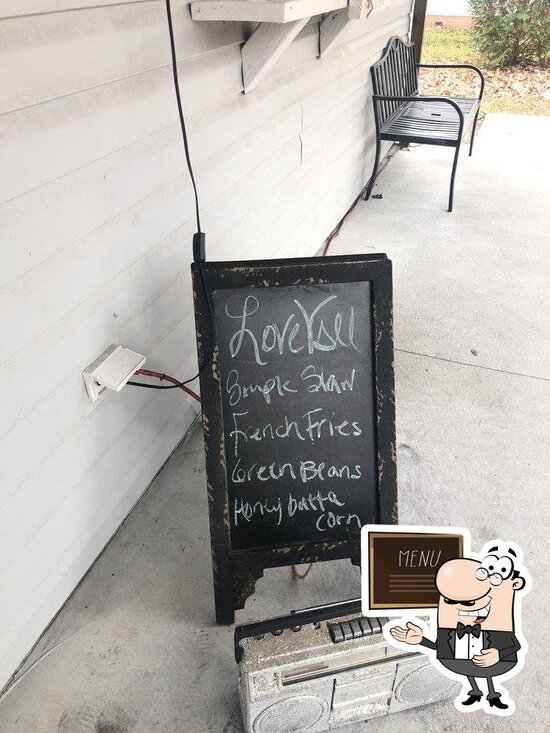 Love Y'all
Simple Slaw
French Fries
Green Beans
Honey butta
corn
MENU